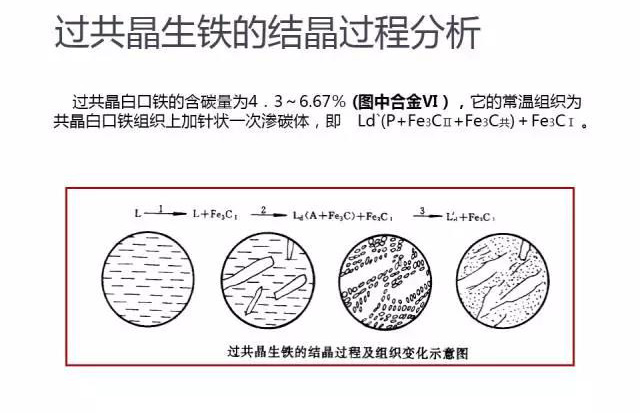 过共晶生铁的结晶过程分析
过共晶白口铁的含碳量为4．3～6.67% (图中合金Ⅵ），它的常温组织为
共晶白口铁组织上加针状一次渗碳体，即 Ld`(P+Fe3CⅡ+Fe3C共)＋Fe3CⅠ 。
L —1→ L+Fe₃C₁ —2→ Ld(A+Fe₃C)+Fe₃C₁ —3→ L′d+Fe₃C₁
过共晶生铁的结晶过程及组织变化示意图